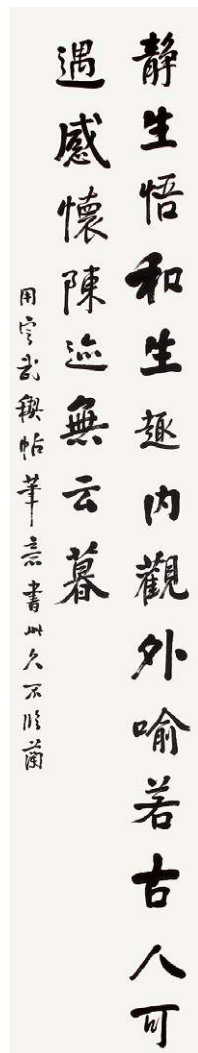 静生悟和生趣内觀外喻若古人可
遇感懷陳迹無云暮
用定武稧帖筆意書此久不临蘭